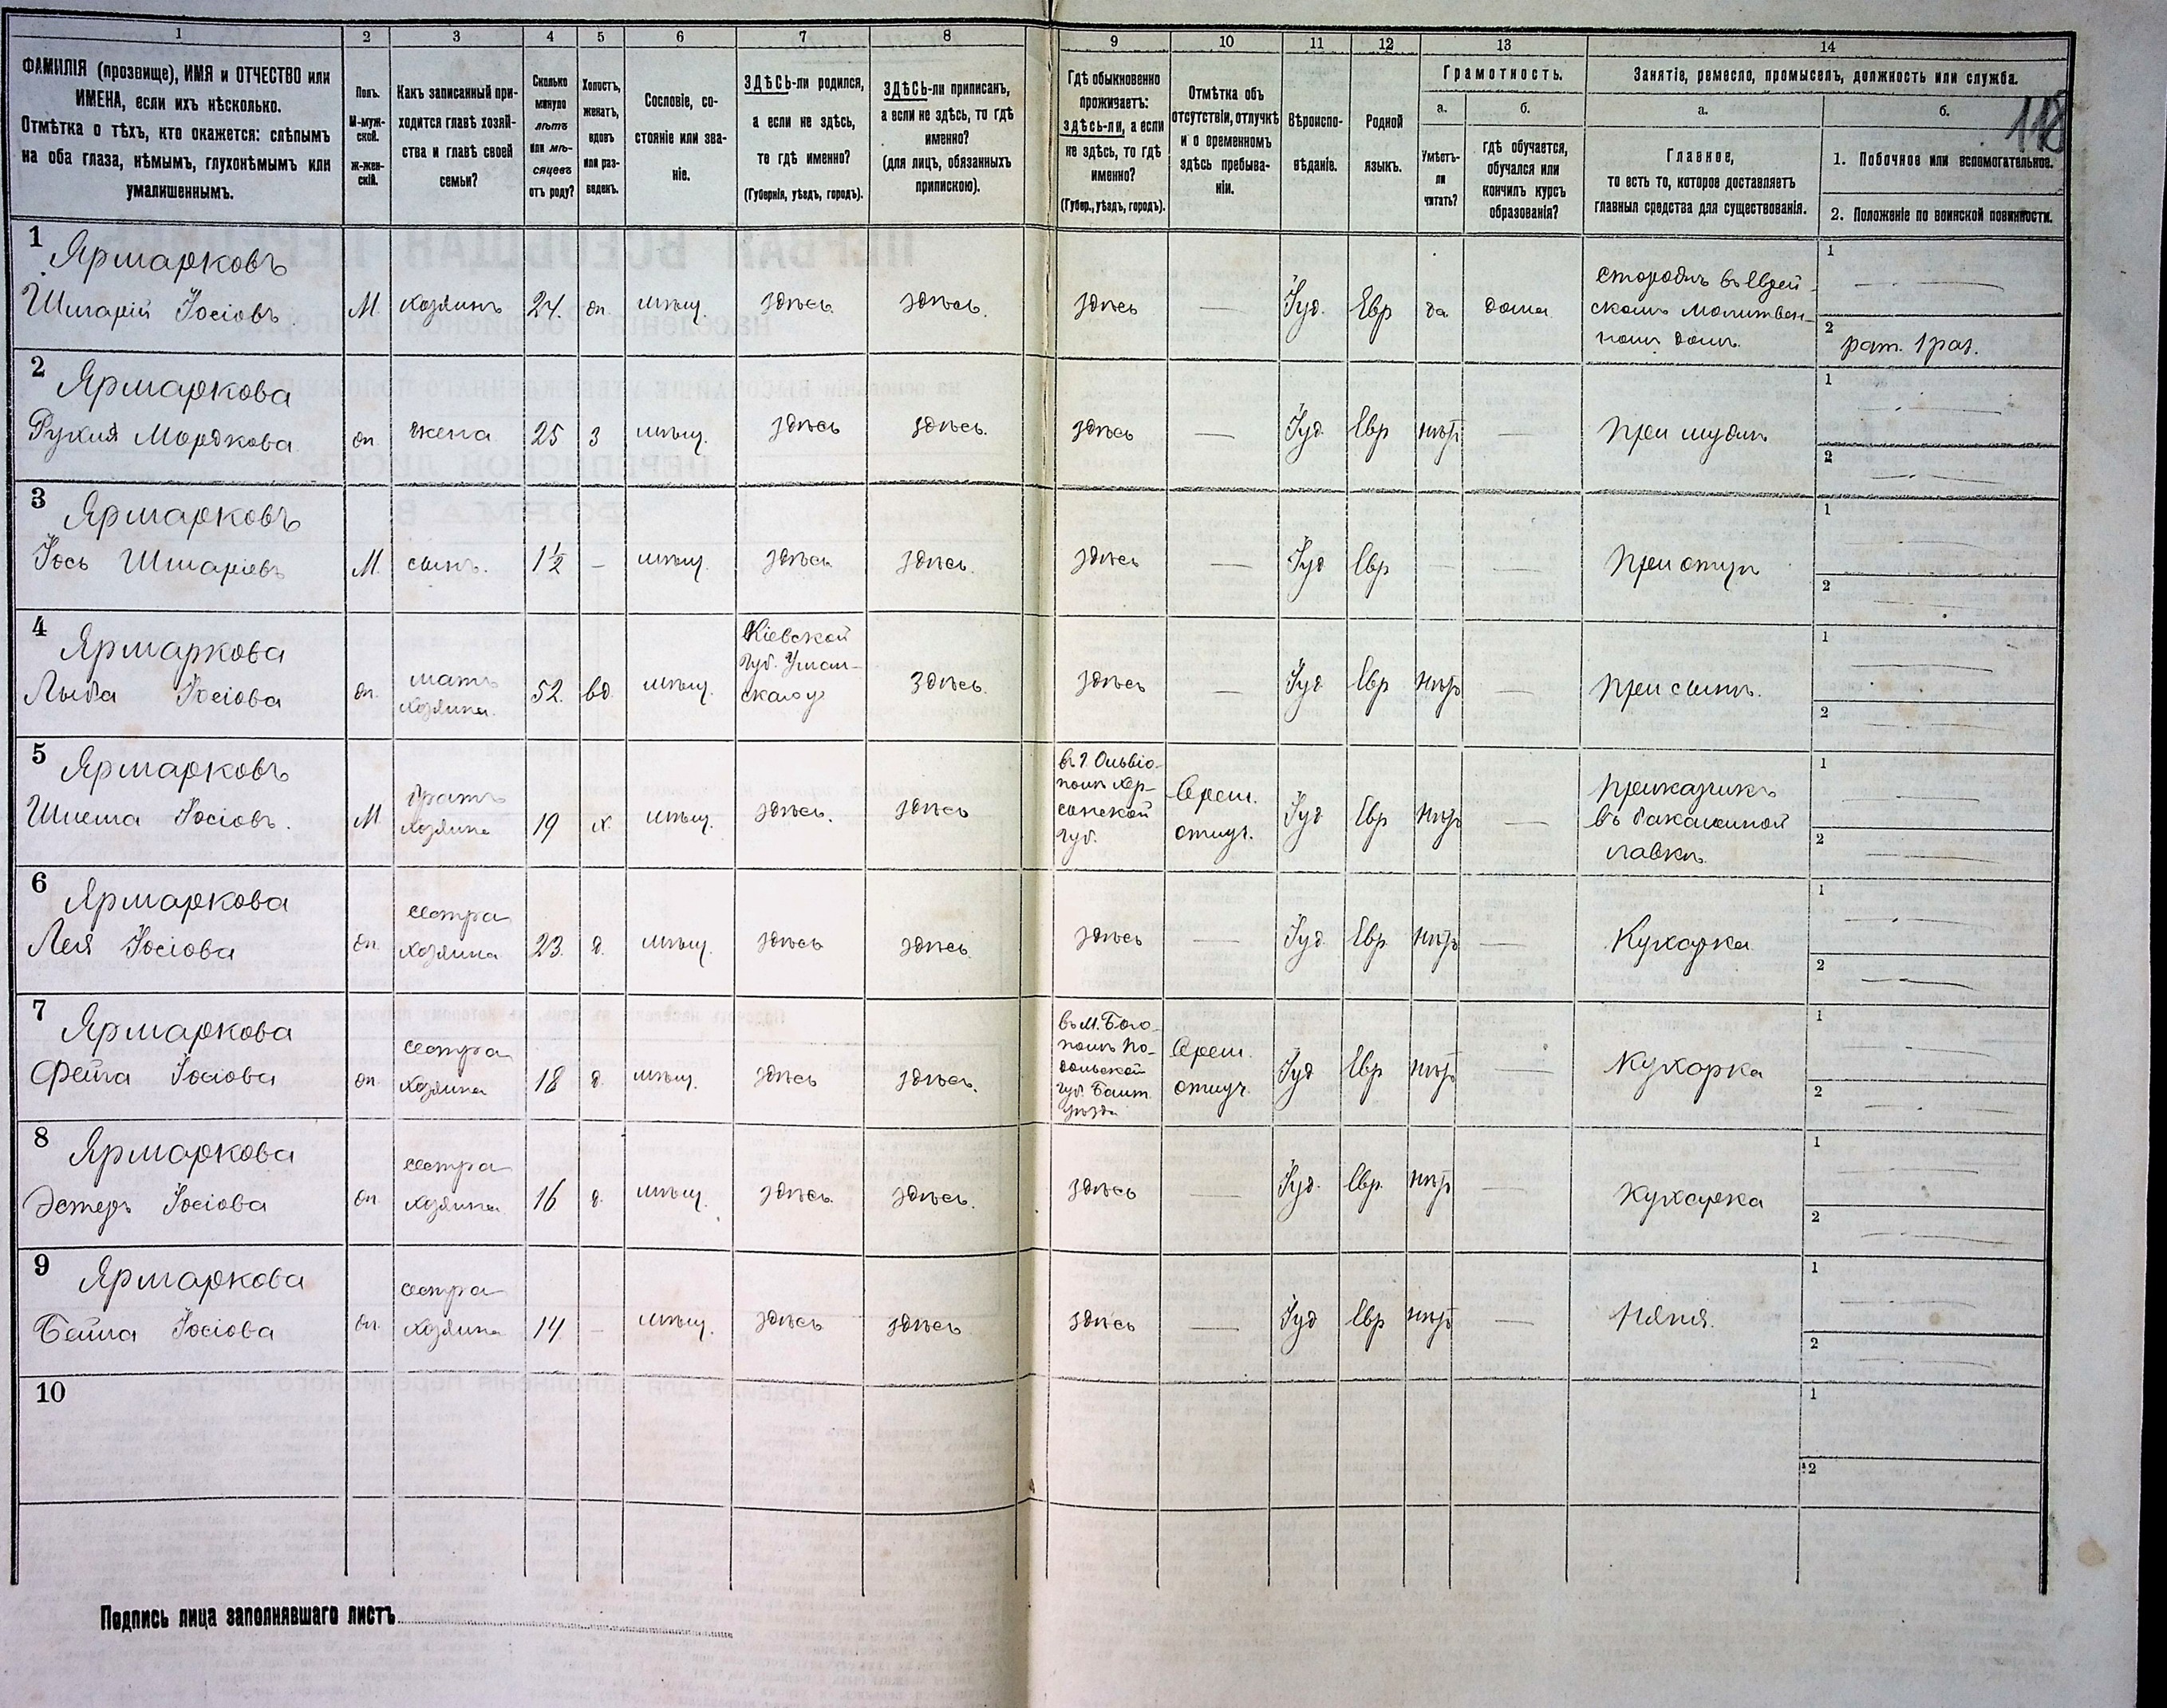 1
2
3
4
5
6
7
8
9
10
11
12
13
14
ФАМИЛІЯ (прозвище), ИМЯ и ОТЧЕСТВО или
ИМЕНА, если ихъ нѣсколько.
Отмѣтка о тѣхъ, кто окажется: слѣпымъ
на оба глаза, нѣмымъ, глухонѣмымъ или
умалишеннымъ.
Полъ.
М-муж-
ской.
Ж-жен-
скій.
Какъ записанный при-
ходится главѣ хозяй-
ства и главѣ своей
семьи?
Сколько
минуло
лѣтъ
или мѣ-
сяцевъ
отъ роду?
Холостъ,
женатъ,
вдовъ
или раз-
веденъ.
Сословіе, со-
стояніе или зва-
ніе.
ЗДѢСЬ-ли родился,
а если не здѣсь,
то гдѣ именно?
(Губернія, уѣздъ, городъ).
ЗДѢСЬ-ли приписан,
а если не здѣсь, то гдѣ
именно?
(для лицъ, обязанныхъ
припискою).
Гдѣ обыкновенно
проживаетъ:
здѣсь-ли, а если
не здѣсь, то гдѣ
именно?
(Губер., уѣздъ, городъ).
Отмѣтка объ
отсутствіи, отлучкѣ
и о временномъ
здѣсь пребыва-
ніи.
Вѣроиспо-
вѣданіе.
Родной
языкъ.
Грамотность.
а.
б.
Умѣетъ-
ли
читать?
гдѣ обучается,
обучался или
кончилъ курсъ
образованія?
Занятіе, ремесло, промыселъ, должность или служба.
а.
б.
118
Главное,
то есть то, которое доставляетъ
главныя средства для существованія.
1. Побочное или вспомогательное.
2. Положеніе по воинской повинности.
1
Ярмарковъ
Шмарій Іосіовъ.
М. хозяинъ 24. жн. мѣщ. здѣсь. здѣсь. здѣсь — Іуд. Евр да дома
сторожъ въ Еврей-
скомъ молитвен-
номъ домѣ.
1 —
2 рат. 1 раз.
2
Ярмаркова
Рухля Мордкова
жн. жена 25 З мѣщ. здѣсь здѣсь. здѣсь — Іуд. Евр нѣтъ — при мужѣ
1 —
2 —
3
Ярмарковъ
Іось Шмаріевъ
М. сынъ. 1½ — мѣщ. здѣсь здѣсь. здѣсь — Іуд Евр — — при отцѣ
1 —
2 —
4
Ярмаркова
Лыба Іосіова
жн. мать
хозяина. 52. вд. мѣщ.
Кіевской
губ. Уман-
скаго у
здѣсь. здѣсь — Іуд Евр нѣтъ — при сынѣ.
1 —
2 —
5
Ярмарковъ
Шлема Іосіовъ.
М братъ
хозяина 19 х. мѣщ. здѣсь. здѣсь
въ г. Ольвіо-
полѣ Хер-
сонской
губ.
Врем.
отлуч.
Іуд Евр нѣтъ —
приказчикъ
въ бакалейной
лавкѣ
1 —
2 —
6
Ярмаркова
Лея Іосіова
жн. сестра
хозяина 23. д. мѣщ. здѣсь здѣсь здѣсь — Іуд Евр нѣтъ — Кухарка
1 —
2 —
7
Ярмаркова
Фейга Іосіова
жн. сестра
хозяина 18 д. мѣщ. здѣсь здѣсь.
въ М. Бого-
полѣ По-
дольской
губ. Балт.
уѣзда
Врем.
отлуч.
Іуд Евр нѣтъ — Кухарка
1 —
2 —
8
Ярмаркова
Эстеръ Іосіова
жн. сестра
хозяина 16 д. мѣщ. здѣсь. здѣсь. здѣсь — Іуд. Евр. нѣтъ — Кухарка
1 —
2 —
9
Ярмаркова
Бейла Іосіова
жн. сестра
хозяина 14. — мѣщ. здѣсь здѣсь здѣсь — Іуд Евр нѣтъ — Няня.
1 —
2 —
10
1
2
Подпись лица заполнявшаго листъ